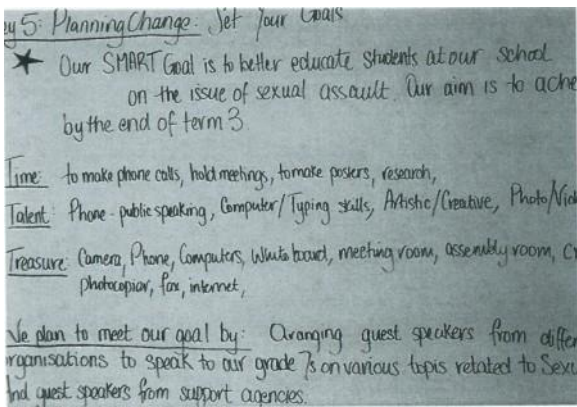 5: Planning Change: Set Your Goals
★ Our SMART Goal is to better educate students at our school
on the issue of sexual assault. Our aim is to
by the end of term 3
Time: to make phone calls, hold meetings, to make posters, research,
Talent: Phone - public speaking, Computer/Typing skills, Artistic/Creative, Photo/
Treasure: Camera, Phone, Computers, White board, meeting room, assembly room,
photocopier, fax, internet,
We plan to meet our goal by: Aranging guest speakers from
organisations to speak to our grade 7s on various topis related to
and guest speakers from support agencies.